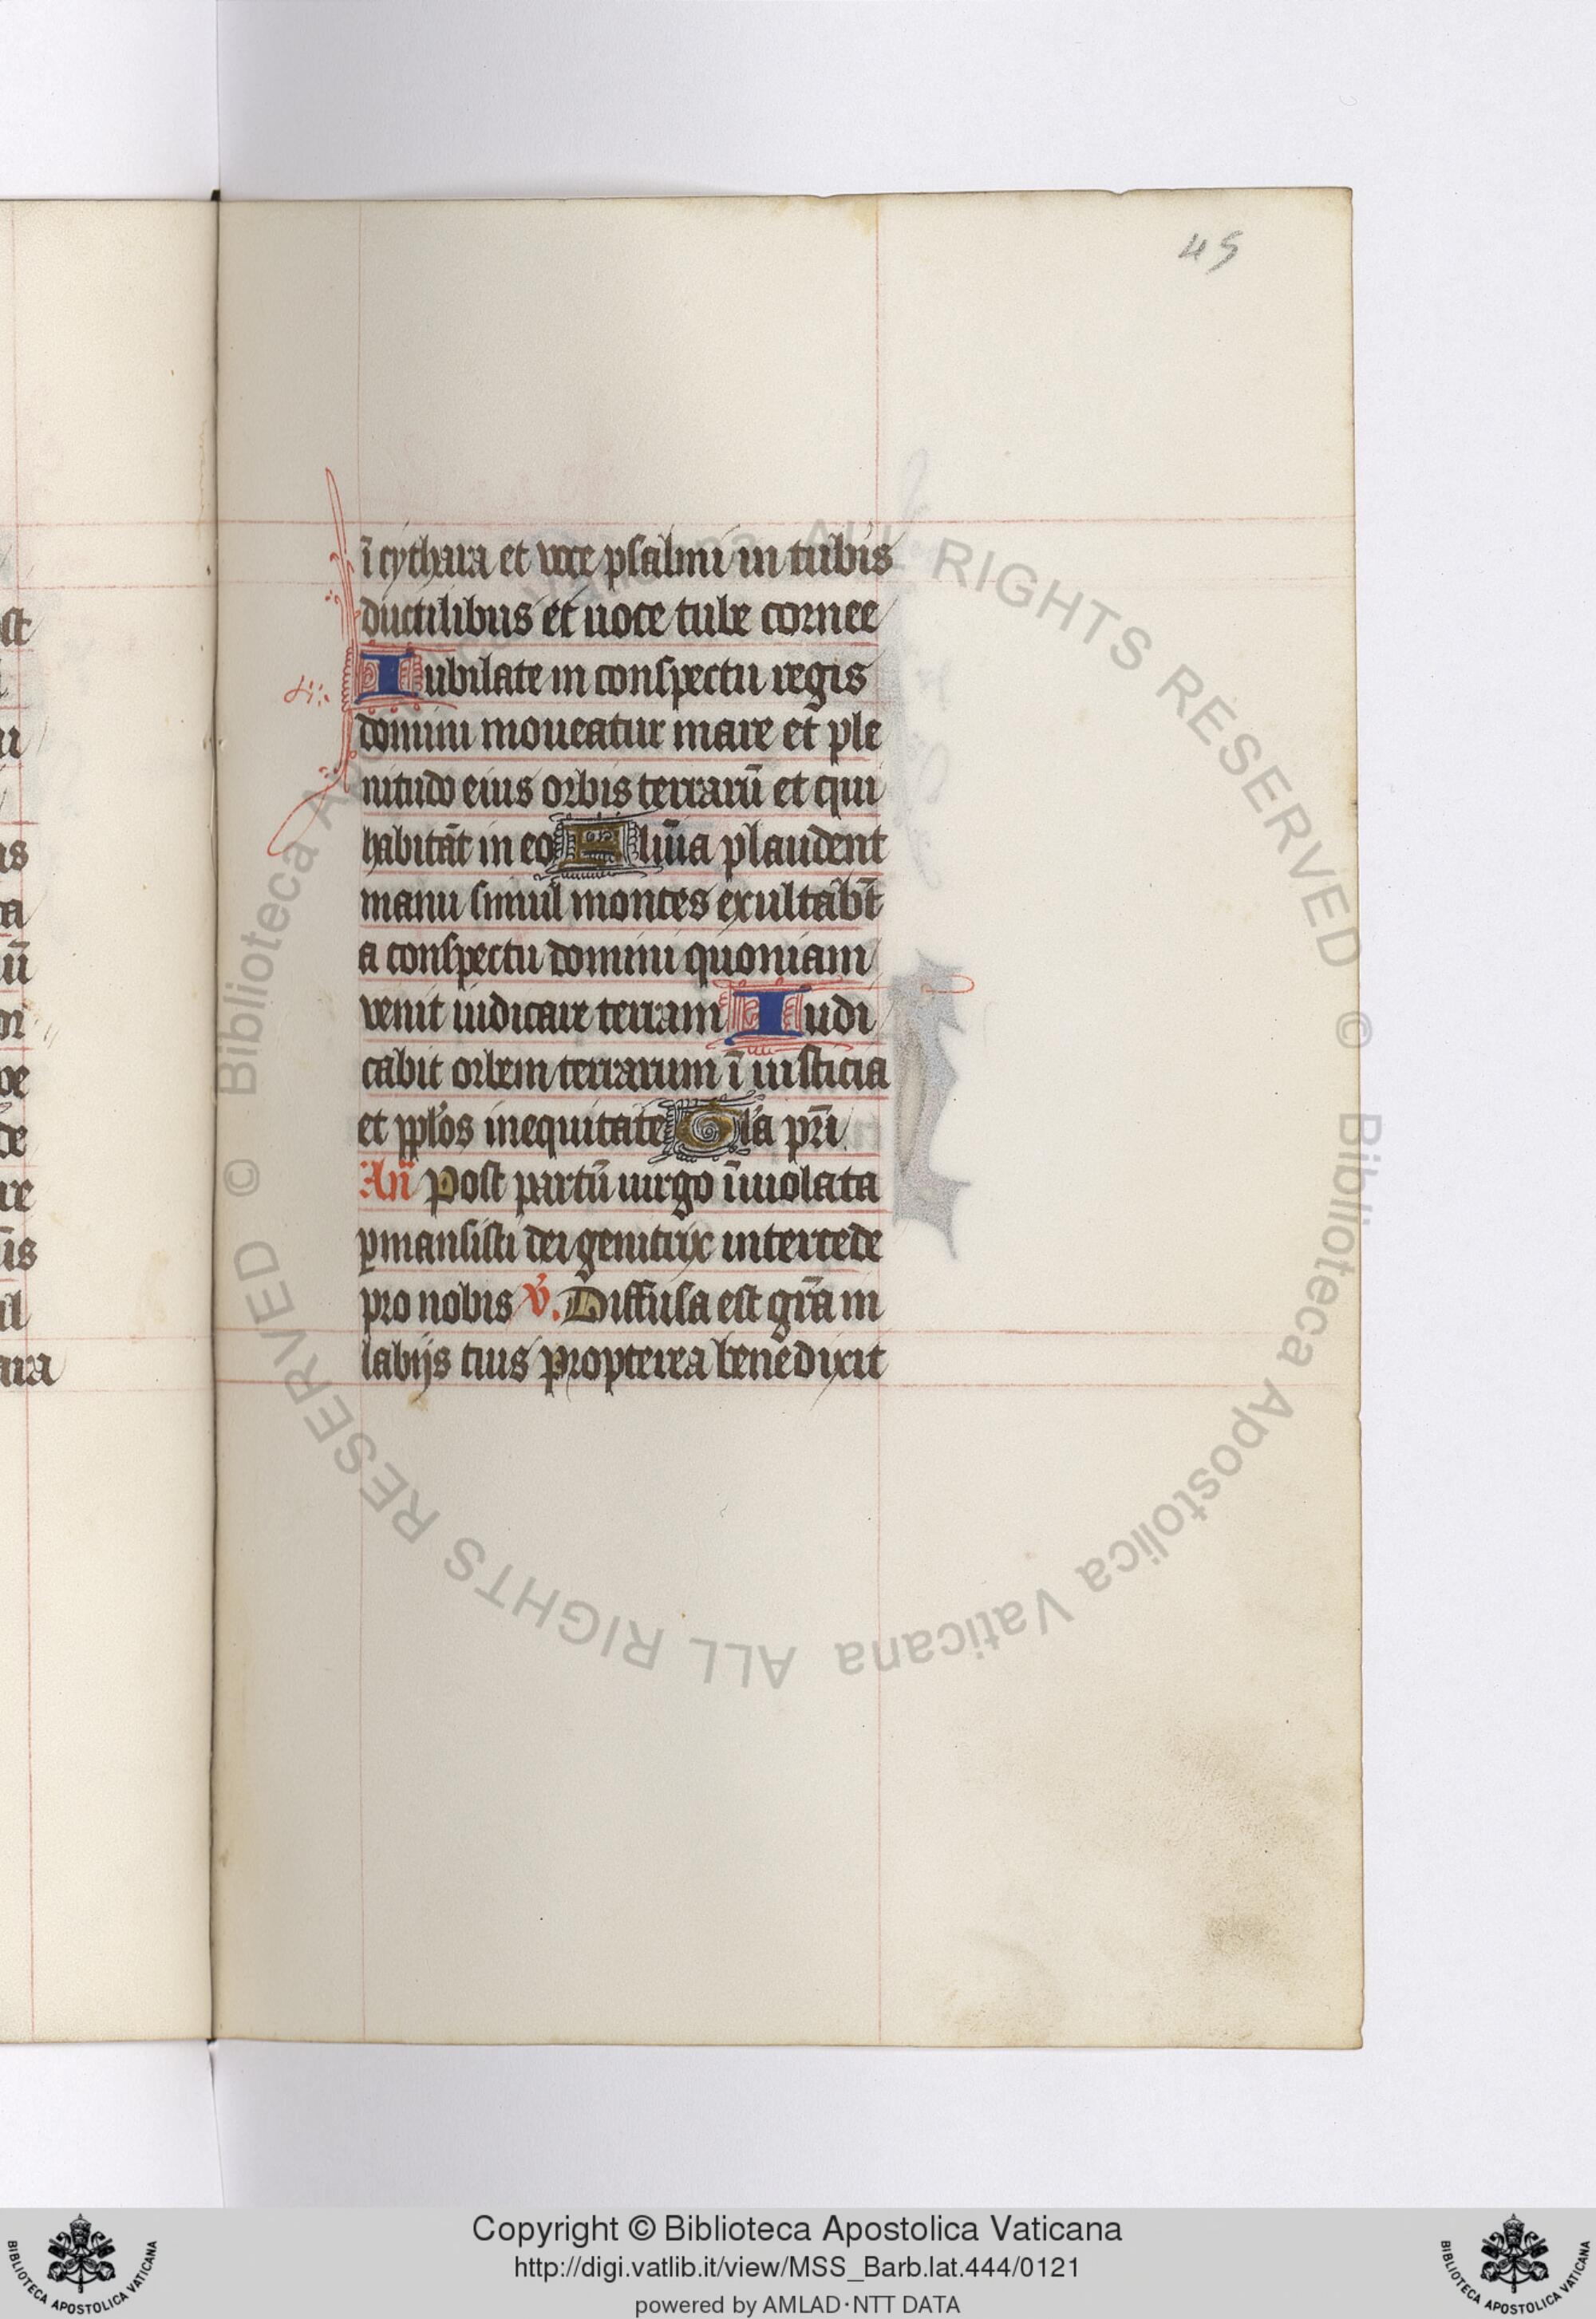 45
ī cythara et voce psalmi in tubis
ductilibus et uoce tube cornee
Iubilate in conspectu regis
domini moueatur mare et ple
nitudo eius orbis terrarū et qui
habitāt in eo Flūīa plaudent
manu simul montes exultabt̄
a conspectu domini quoniam
venit iudicare terram Iudi
cabit orbem terrarum ī iusticia
et pplos inequitate Gla pri
An Post partū uirgo īuiolata
ꝑmansisti dei genitrix intercede
pro nobis v. Diffusa est grā in
labijs tuis propterea benedixit
st
u
is
ta
ū
or
pe
de
re
īs
il
ara
© Biblioteca Apostolica Vaticana ALL RIGHTS RESERVED © Biblioteca Apostolica Vaticana ALL RIGHTS RESERVED
Copyright © Biblioteca Apostolica Vaticana
http://digi.vatlib.it/view/MSS_Barb.lat.444/0121
powered by AMLAD·NTT DATA
BIBLIOTECA APOSTOLICA VATICANA
BIBLIOTECA APOSTOLICA VATICANA